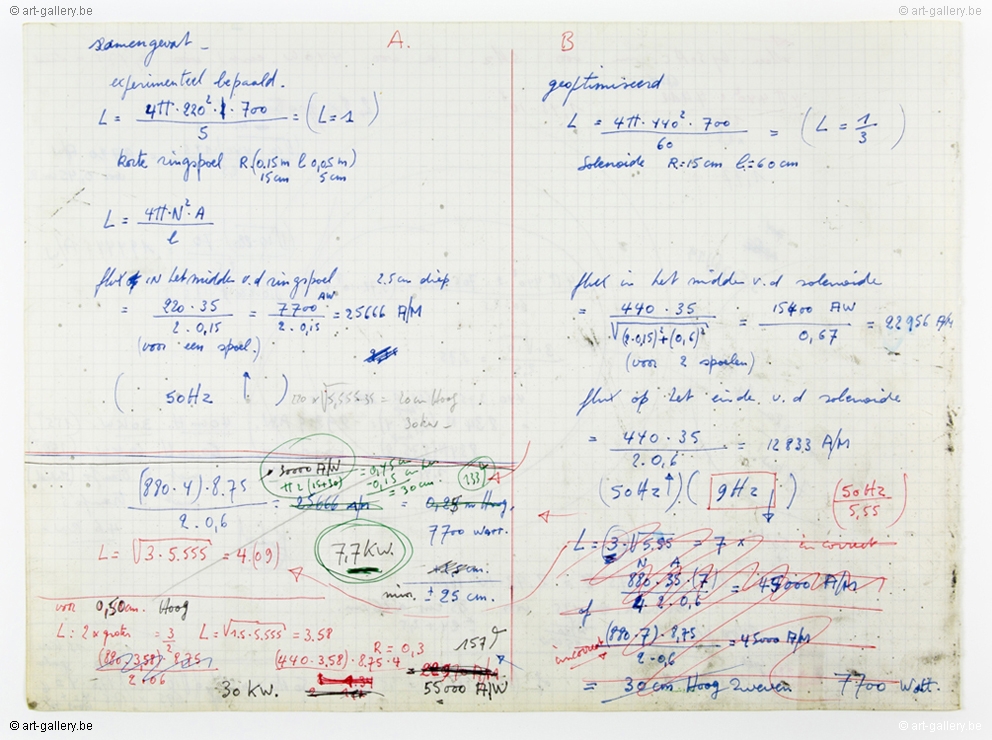 © art-gallery.be
© art-gallery.be
samengevat -
A.
experimenteel bepaald.
L = 4π·220²·1·700 / 5 = (L=1)
korte ringspoel R.(0,15m l 0,05m)
15cm 5cm
L = 4π·N²·A / l
flux in het midden v.d ringspoel 2.5cm diep
= 220·35 / 2·0,15 = 7700 AW / 2·0,15 = 25666 A/M
(voor een spoel.)
( 50Hz ↑ )
170 × √5,555·35 = 20cm Hoog
30kw -
30000 A/W
π2(15+30)
= 0,45cm
-0,15
= 30cm.
133
(880·4)·8.75 / 2·0,6 = 25666 A/M = 0,25 m Hoog.
7700 Watt.
L = √(3·5.555) = 4.09)
7,7KW.
min. ± 25 cm.
voor 0,50cm. Hoog
L: 2 x groter = 3/2 L = √(1.5·5.555) = 3.58
R = 0,3 157
(880·3,58)·8.75 / 2·0,6
(440·3.58)·8.75·4
30 KW.
55000 A/W
B
geoptimiseerd
L = 4π·440²·700 / 60 = (L = 1/3)
Solenoide R=15cm l=60cm
flux in het midden v.d solenoide
= 440·35 / √((2·0.15)²+(0,6)²) = 15400 AW / 0,67 = 22956 A/M
(voor 2 spoelen)
flux op het einde v.d solenoide
= 440·35 / 2·0,6 = 12833 A/M
(50Hz ↑)( 9Hz ↓ )
(50Hz / 5,55)
L = 3·√5.55 = 7 x
incorrect
N A
880·35·(7) / 4·2·0,6 = 45000 A/M
of
incorrect
(880·7)·8,75 / 2·0,6 = 45000 A/M
= 30cm Hoog Zweven 7700 Watt.
© art-gallery.be
© art-gallery.be